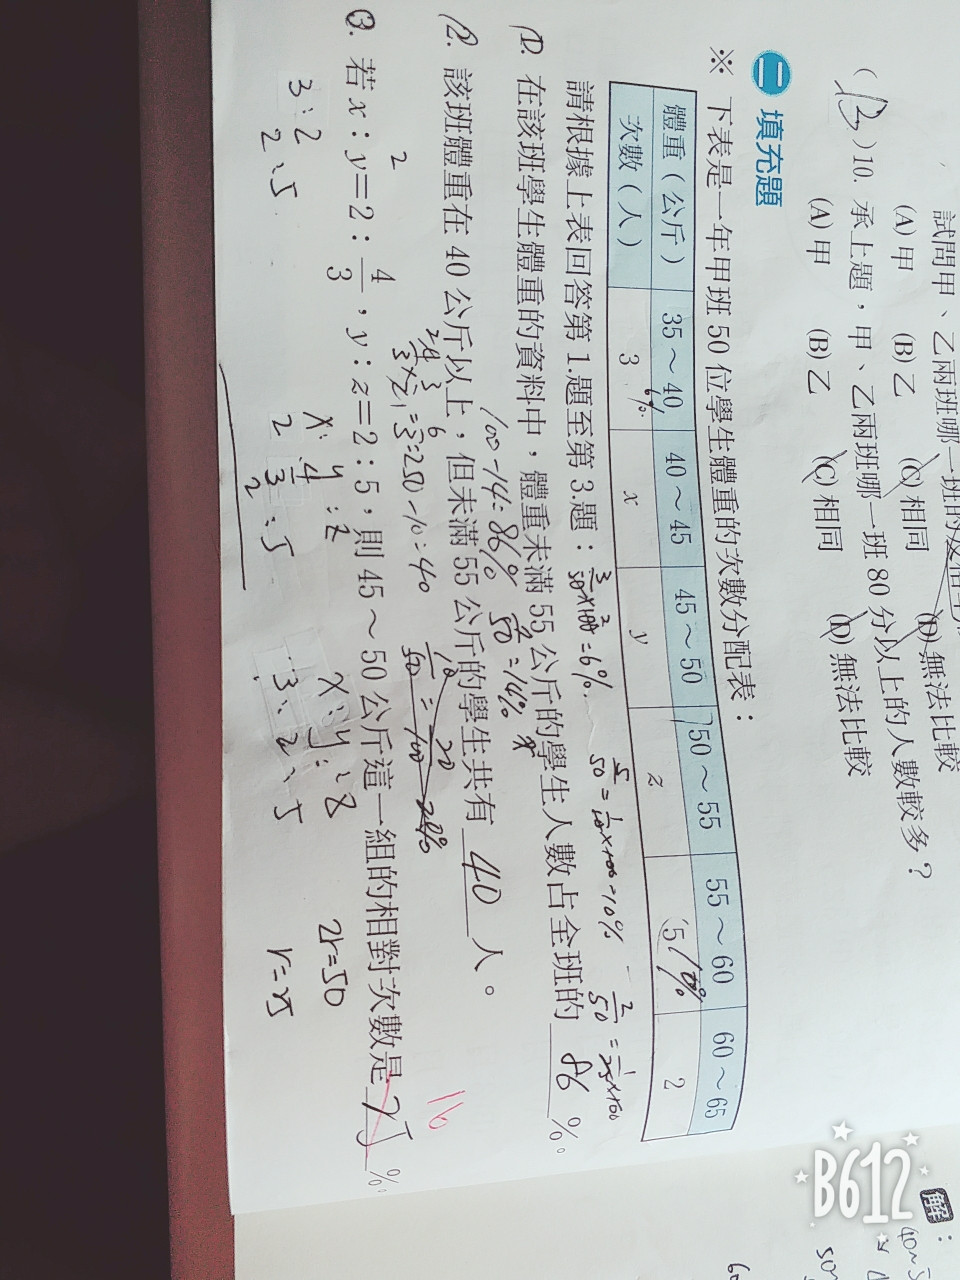 試問甲、乙兩班哪一班的
(A) 甲 (B) 乙 (C) 相同 (D) 無法比較
( )10. 承上題，甲、乙兩班哪一班 80 分以上的人數較多？
(A) 甲 (B) 乙 (C) 相同 (D) 無法比較
二 填充題
※ 下表是一年甲班 50 位學生體重的次數分配表：
體重（公斤） 35～40 40～45 45～50 50～55 55～60 60～65
次數（人） 3 6% x y z 5 10% 2
請根據上表回答第 1.題至第 3.題：
3/50×100=6%
5/50=1/10×100=10%
2/50=1/25×100
1. 在該班學生體重的資料中，體重未滿 55 公斤的學生人數占全班的 86 %。
100-14=86%
=14%
2. 該班體重在 40 公斤以上，但未滿 55 公斤的學生共有 40 人。
50-10=40
3. 若 x：y＝2：4/3，y：z＝2：5，則 45～50 公斤這一組的相對次數是 25 %。
16
3:2
2:5
x:y:z
2 4/3
2:5
x:y:z
3:2:5
2r=50
r=25
B612
解：